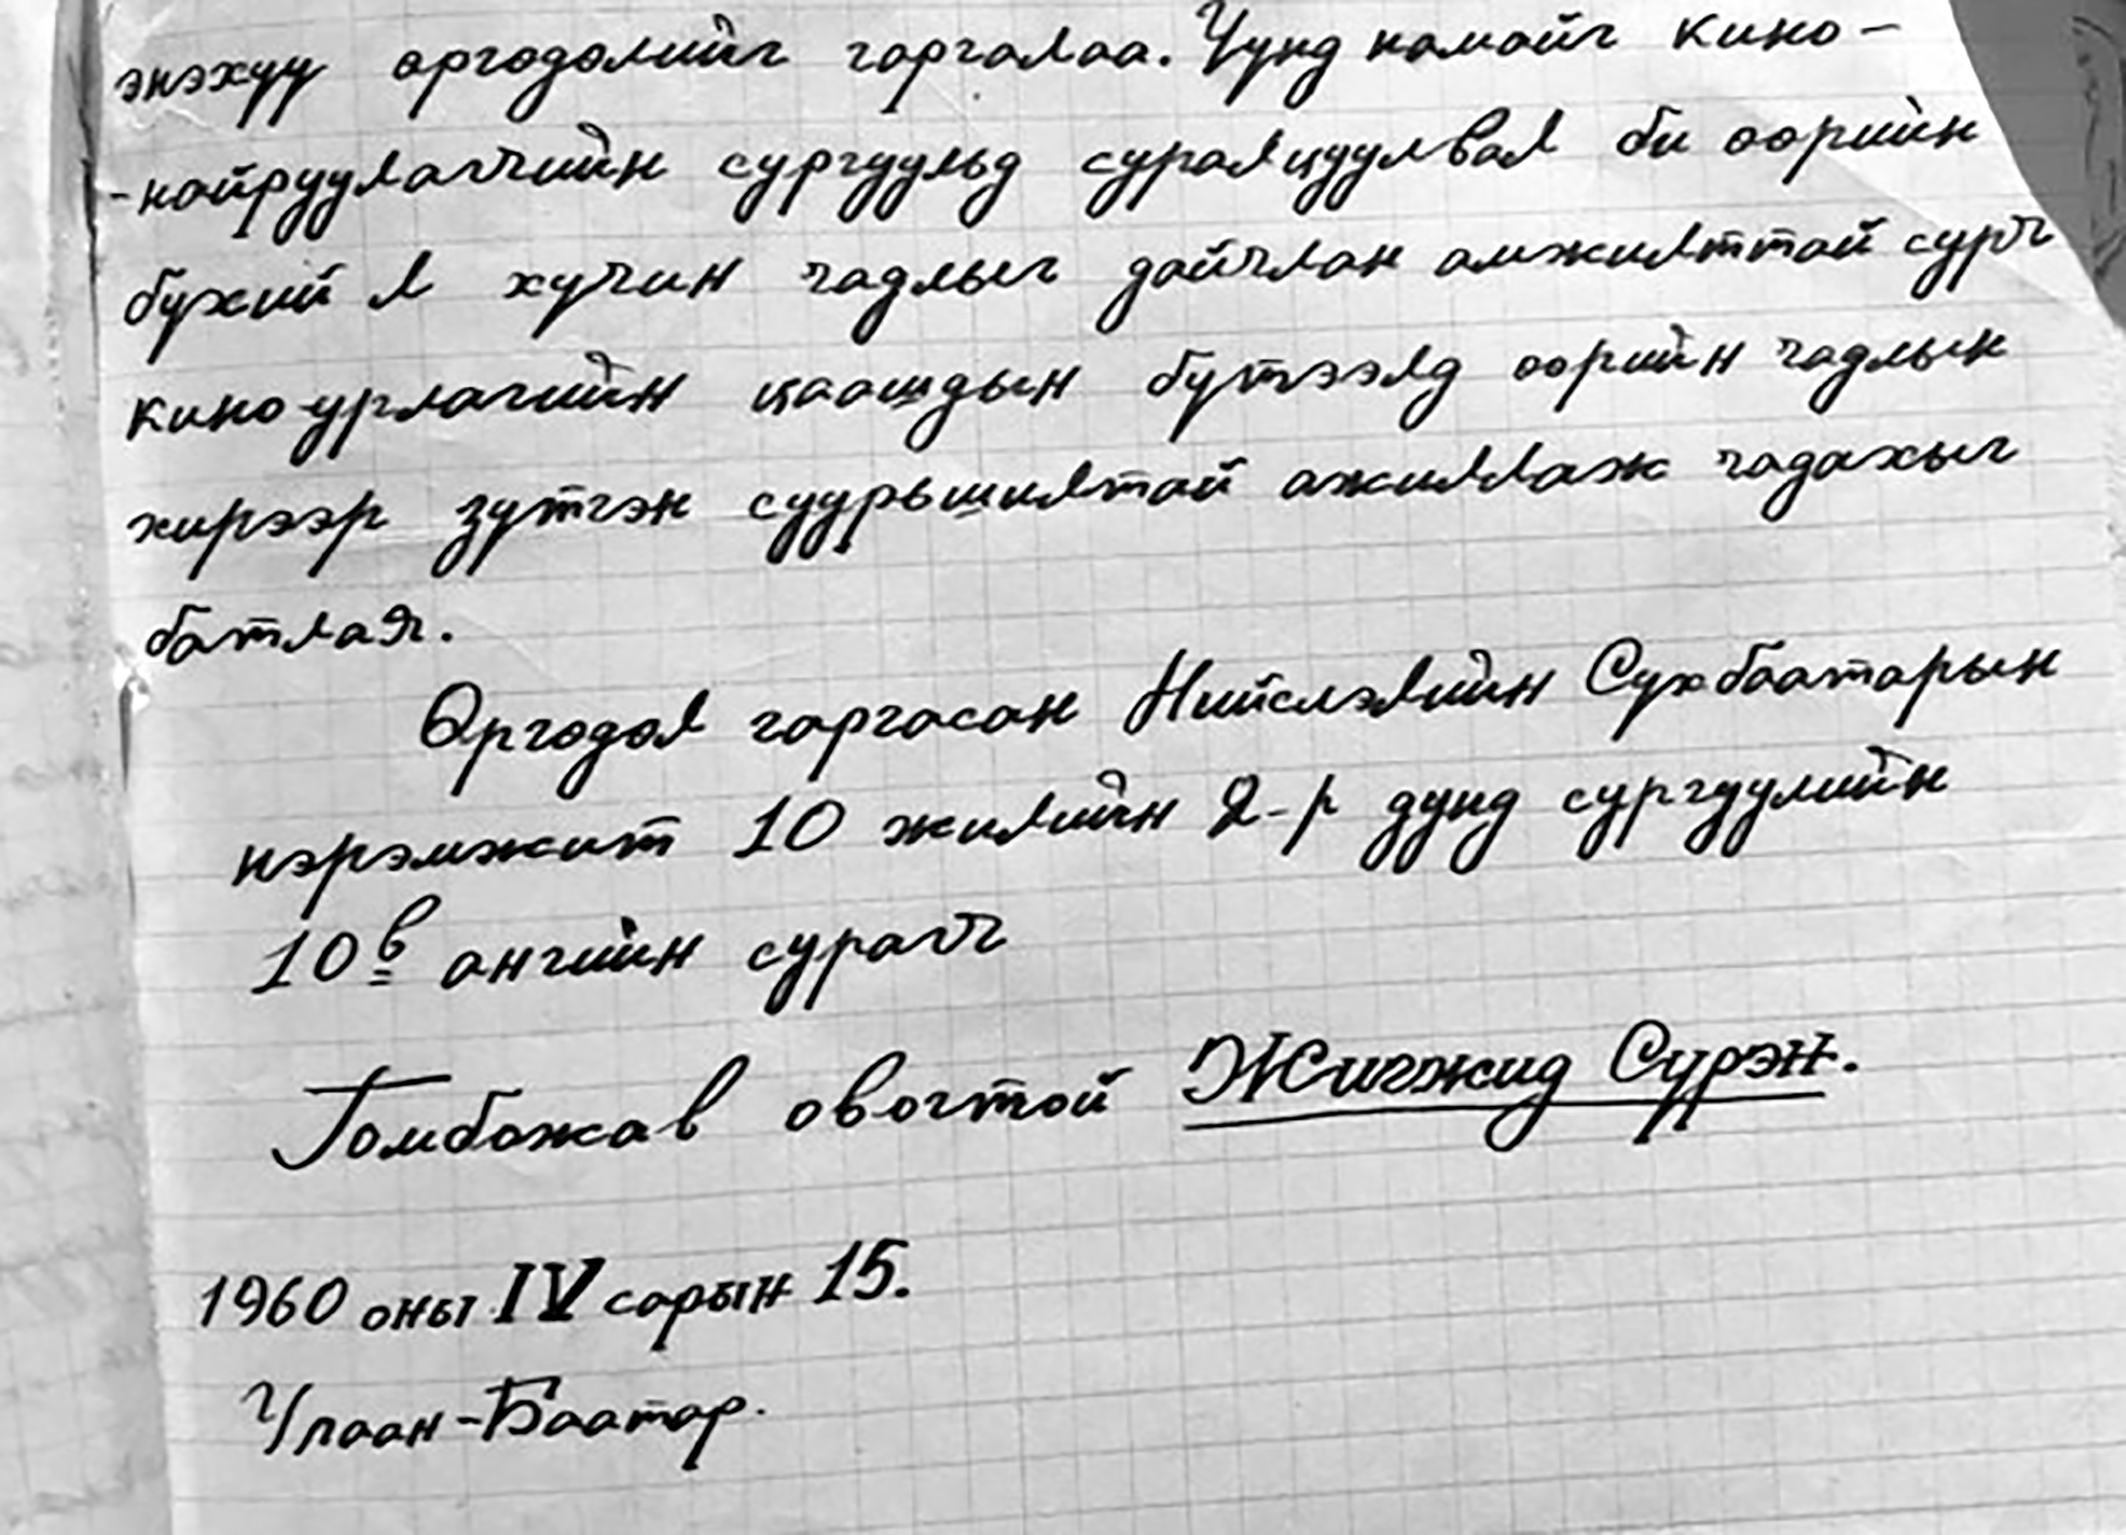 энэхүү өргөдөлийг гаргалаа. Үүнд намайг кино-
-найруулагчийн сургуульд суралцуулвал би өөрийн
бүхий л хүчин чадлыг дайчлан амжилттай сурч
кино урлагийн цаашдын бүтээлд өөрийн чадлын
хирээр зүтгэн суурьшилтай ажиллаж чадахыг
батлая.
Өргөдөл гаргасан Нийслэлийн Сүхбаатарын
нэрэмжит 10 жилийн 2-р дунд сургуулийн
10в ангийн сурагч
Гомбожав овогтой Жигжид Сүрэн.
1960 оны IV сарын 15.
Улаан-Баатар.